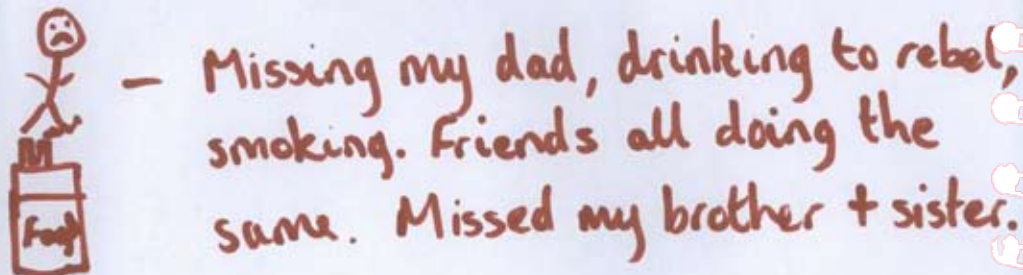 – Missing my dad, drinking to rebel,
smoking. Friends all doing the
same. Missed my brother + sister.